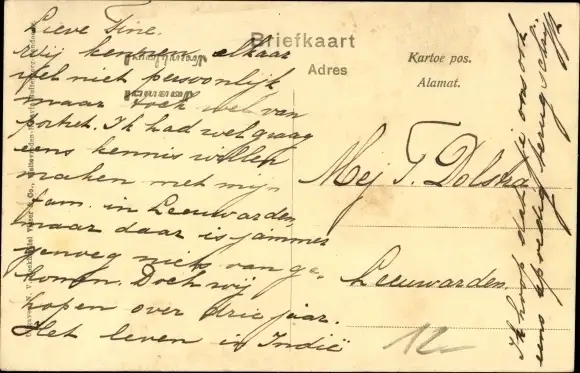 Lieve Tine.
Wij kennen elkaar
wel niet persoonlijk
maar toch wel van
portret. Ik had wel graag
eens kennis willen
maken met mijn
fam. in Leeuwarden,
maar daar is jammer
genoeg niet van ge-
komen. Doch wij
hopen over drie jaar.
Het leven in Indië
Briefkaart
Adres
Kartoe pos.
Alamat.
Mej T. Dolstra
Leeuwarden.
12
Ik hoop dat je ons ook
eens spoedig terug schrijft.